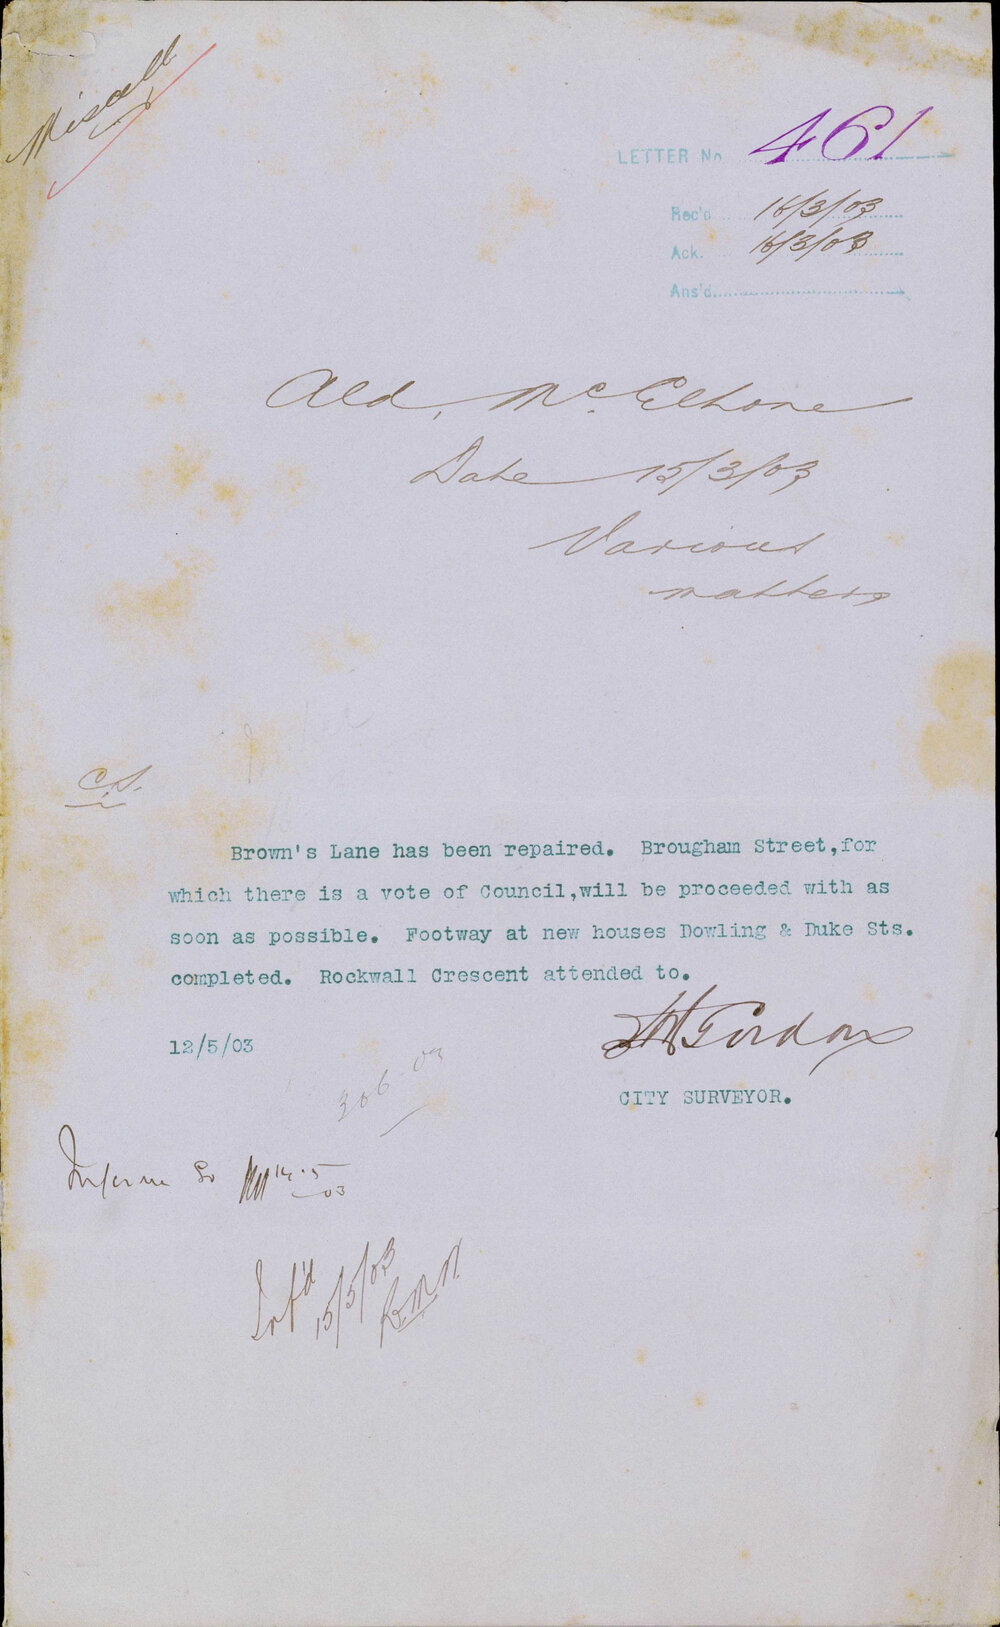 Miscell
LETTER No 461
Rec'd 16/3/03
Ack. 16/3/03
Ans'd
Ald. McElhone
Date 15/3/03
Various
matters
C.S.
Brown's Lane has been repaired. Brougham Street,for
which there is a vote of Council,will be proceeded with as
soon as possible. Footway at new houses Dowling & Duke Sts.
completed. Rockwall Crescent attended to.
12/5/03
Gordon
CITY SURVEYOR.
306-03
Inform so 14.5
03
Inf'd
15/5/03
R.M.N.